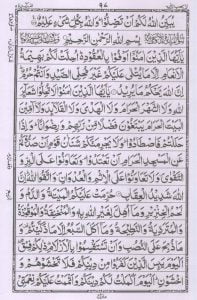 ٩٧
يُبَيِّنُ اللهُ لَكُمْ اَنْ تَضِلُّوْا وَاللهُ بِكُلِّ شَيْءٍ عَلِيْمٌ
بِسْمِ اللهِ الرَّحْمٰنِ الرَّحِيْمِ
يٰۤاَيُّهَا الَّذِيْنَ اٰمَنُوْۤا اَوْفُوْا بِالْعُقُوْدِ اُحِلَّتْ لَكُمْ بَهِيْمَةُ
الْاَنْعَامِ اِلَّا مَا يُتْلٰى عَلَيْكُمْ غَيْرَ مُحِلِّى الصَّيْدِ وَاَنْتُمْ حُرُمٌ اِنَّ
اللهَ يَحْكُمُ مَا يُرِيْدُ يٰۤاَيُّهَا الَّذِيْنَ اٰمَنُوْا لَا تُحِلُّوْا شَعَآئِرَ
اللهِ وَلَا الشَّهْرَ الْحَرَامَ وَلَا الْهَدْىَ وَلَا الْقَلَآئِدَ وَلَاۤ آٰمِّيْنَ
الْبَيْتَ الْحَرَامَ يَبْتَغُوْنَ فَضْلًا مِّنْ رَّبِّهِمْ وَرِضْوَانًا وَاِذَا
حَلَلْتُمْ فَاصْطَادُوْا وَلَا يَجْرِمَنَّكُمْ شَنَاٰنُ قَوْمٍ اَنْ صَدُّوْكُمْ
عَنِ الْمَسْجِدِ الْحَرَامِ اَنْ تَعْتَدُوْا وَتَعَاوَنُوْا عَلَى الْبِرِّ وَ
التَّقْوٰى وَلَا تَعَاوَنُوْا عَلَى الْاِثْمِ وَالْعُدْوَانِ وَاتَّقُوا اللهَ اِنَّ
اللهَ شَدِيْدُ الْعِقَابِ حُرِّمَتْ عَلَيْكُمُ الْمَيْتَةُ وَالدَّمُ وَ
لَحْمُ الْخِنْزِيْرِ وَمَاۤ اُهِلَّ لِغَيْرِ اللهِ بِهٖ وَالْمُنْخَنِقَةُ وَالْمَوْقُوْذَةُ
وَالْمُتَرَدِّيَةُ وَالنَّطِيْحَةُ وَمَاۤ اَكَلَ السَّبُعُ اِلَّا مَا ذَكَّيْتُمْ وَمَا
ذُبِحَ عَلَى النُّصُبِ وَاَنْ تَسْتَقْسِمُوْا بِالْاَزْلَامِ ذٰلِكُمْ فِسْقٌ
اَلْيَوْمَ يَئِسَ الَّذِيْنَ كَفَرُوْا مِنْ دِيْنِكُمْ فَلَا تَخْشَوْهُمْ وَ
اخْشَوْنِ اَلْيَوْمَ اَكْمَلْتُ لَكُمْ دِيْنَكُمْ وَاَتْمَمْتُ عَلَيْكُمْ نِعْمَتِىْ